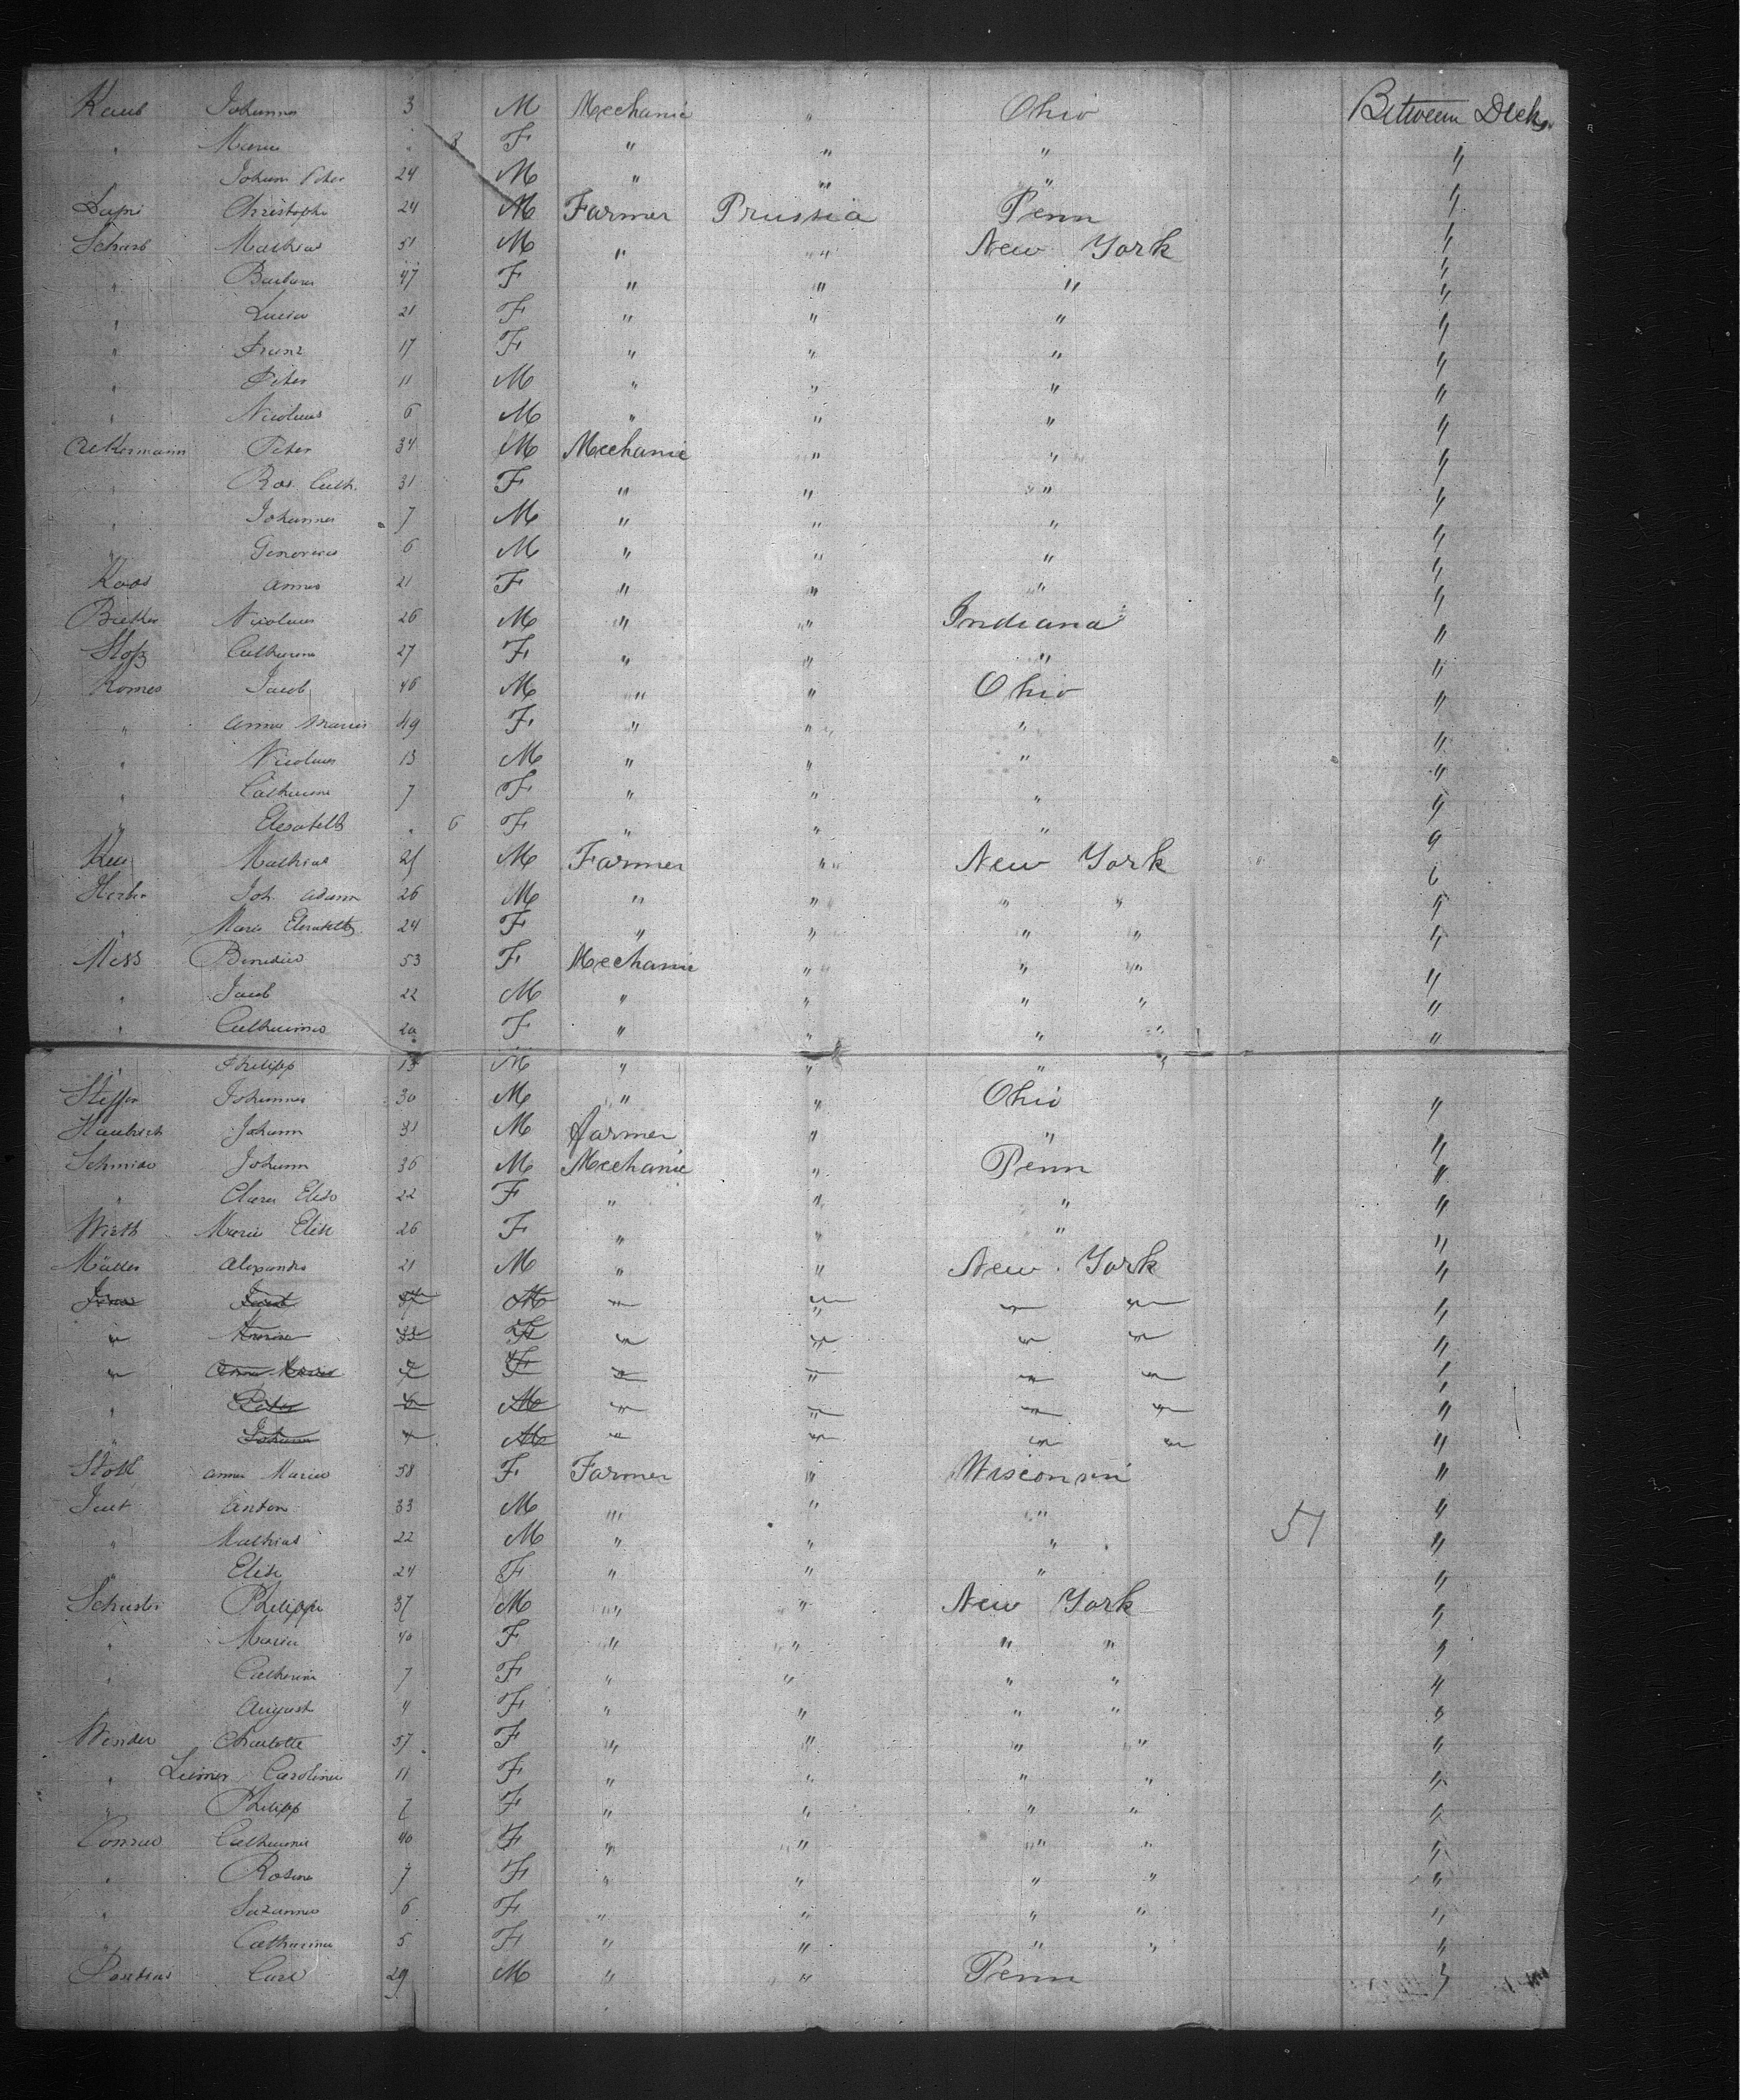 Kaub Johannes 3 M Mechanic " Ohio Between Decks
" Maria " 3 F " " " "
Johann Peter 24 M " " " "
Christoph 24 M Farmer Prussia Penn "
Scharb Mathias 51 M " " New York "
" Barbara 47 F " " " "
" Lucia 21 F " " " "
" Franz 17 F " " " "
" Peter 11 M " " " "
" Nicolaus 6 M " " " "
Ackermann Peter 34 M Mechanic " " "
" Ros. Cath. 31 F " " " "
" Johannes 7 M " " " "
" 6 M " " " "
Koos Anna 21 F " " " "
Nicolaus 26 M " " Indiana "
Catharina 27 F " " " "
Komes Jacob 46 M " " Ohio "
" Anna Maria 49 F " " " "
" Nicolaus 13 M " " " "
" Catharina 7 F " " " "
" Elisabeth " 6 F " " " "
Mathias M Farmer " New York "
Herber Joh. Adam 26 M " " " " "
" Maria Elisabeth 24 F " " " " "
Ness 53 F Mechanic " " " "
" Jacob 22 M " " " " "
" Catharina 20 F " " " " "
" Philipp 13 M " " " "
Steffen Johannes 30 M " " Ohio "
Johann 31 M Farmer " " "
Schmidt Johann 36 M Mechanic " Penn "
" Clara Elise 22 F " " " "
Wirth Maria Elise 26 F " " " "
Müller Alexander 21 M " " New York "
Jacob 37 M " " " " "
" 33 F " " " " "
" Anna Maria 7 F " " " " "
" Peter 6 M " " " " "
" Johann 4 M " " " " "
Anna Maria 58 F Farmer " Wisconsin "
Anton 33 M " " " 51 "
" Mathias 22 M " " " "
" Elise 24 F " " " "
Schuster Philipp 37 M " " New York "
" Maria 40 F " " " " "
" Catharina 7 F " " " " "
" August 4 F " " " " "
Charlotte 57 F " " " " "
" Carolina 11 F " " " " "
" Philipp F " " " " "
Conrad Catharina 40 F " " " " "
" Rosina 7 F " " " " "
" Suzanna 6 F " " " " "
" Catharina 5 F " " " " "
Carl 29 M " " Penn "